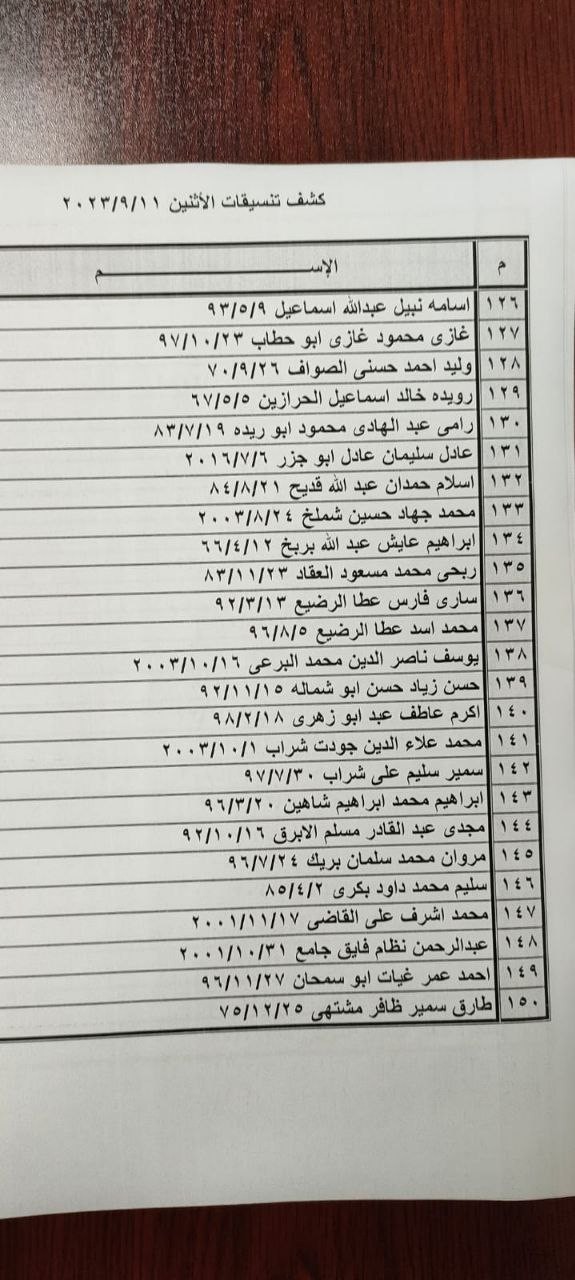 كشف تنسيقات الأثنين ٢٠٢٣/٩/١١
م الإســــــــــــــــم
١٢٦ اسامه نبيل عبدالله اسماعيل ٩٣/٥/٩
١٢٧ غازى محمود غازى ابو حطاب ٩٧/١٠/٢٣
١٢٨ وليد احمد حسنى الصواف ٧٠/٩/٢٦
١٢٩ رويده خالد اسماعيل الحرازين ٦٧/٥/٥
١٣٠ رامى عبد الهادى محمود ابو ريده ٨٣/٧/١٩
١٣١ عادل سليمان عادل ابو جزر ٢٠١٦/٧/٦
١٣٢ اسلام حمدان عبد الله قديح ٨٤/٨/٢١
١٣٣ محمد جهاد حسين شملخ ٢٠٠٣/٨/٢٤
١٣٤ ابراهيم عايش عبد الله بربخ ٦٦/٤/١٢
١٣٥ ربحى محمد مسعود العقاد ٨٣/١١/٢٣
١٣٦ سارى فارس عطا الرضيع ٩٢/٣/١٣
١٣٧ محمد اسد عطا الرضيع ٩٦/٨/٥
١٣٨ يوسف ناصر الدين محمد البرعى ٢٠٠٣/١٠/١٦
١٣٩ حسن زياد حسن ابو شماله ٩٢/١١/١٥
١٤٠ اكرم عاطف عبد ابو زهرى ٩٨/٢/١٨
١٤١ محمد علاء الدين جودت شراب ٢٠٠٣/١٠/١
١٤٢ سمير سليم على شراب ٩٧/٧/٣٠
١٤٣ ابراهيم محمد ابراهيم شاهين ٩٦/٣/٢٠
١٤٤ مجدى عبد القادر مسلم الابرق ٩٢/١٠/١٦
١٤٥ مروان محمد سلمان بريك ٩٦/٧/٢٤
١٤٦ سليم محمد داود بكرى ٨٥/٤/٢
١٤٧ محمد اشرف على القاضى ٢٠٠١/١١/١٧
١٤٨ عبدالرحمن نظام فايق جامع ٢٠٠١/١٠/٣١
١٤٩ احمد عمر غيات ابو سمحان ٩٦/١١/٢٧
١٥٠ طارق سمير ظافر مشتهى ٧٥/١٢/٢٥